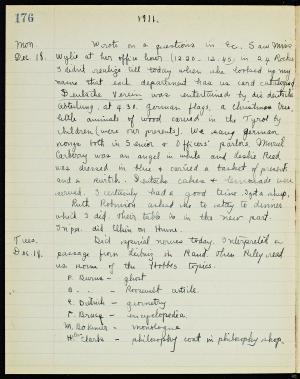 176
1911.
Mon. Wrote on a questions in Ec. Saw Miss
Dec 18. Wylie at her office hour (12.20-12.45) in 24 Rocke
I didn't realize till today when she looked up my
name that each department has us card catalogued
Deutsche Verein was entertained by die deutsche
Abteilung, at 4.30. German flags, a Christmas tree,
little animals of wood carved in the Tyrol by
children (were our presents). We sang German
songs both in Senior & Officers' parlors. Muriel
was an angel in white and Leslie Reed
was dressed in blue & carried a basket of presents
and a Deutsche cakes & lemonade was
served. I certainly had a good time.
Ruth Robinson asked me to stay to dinner
which I did. Their table is in the new part.
in Hume.
Tues. Did special review today.
Dec. 19. passage from Then Riley read
us some of the Hobbes topics.
F. Burns - ghost
" - Roosevelt article
E. - geometry
F. - encyclopedia
M. - monologue
H. Clarke - philosophy coat in philosophy shop.